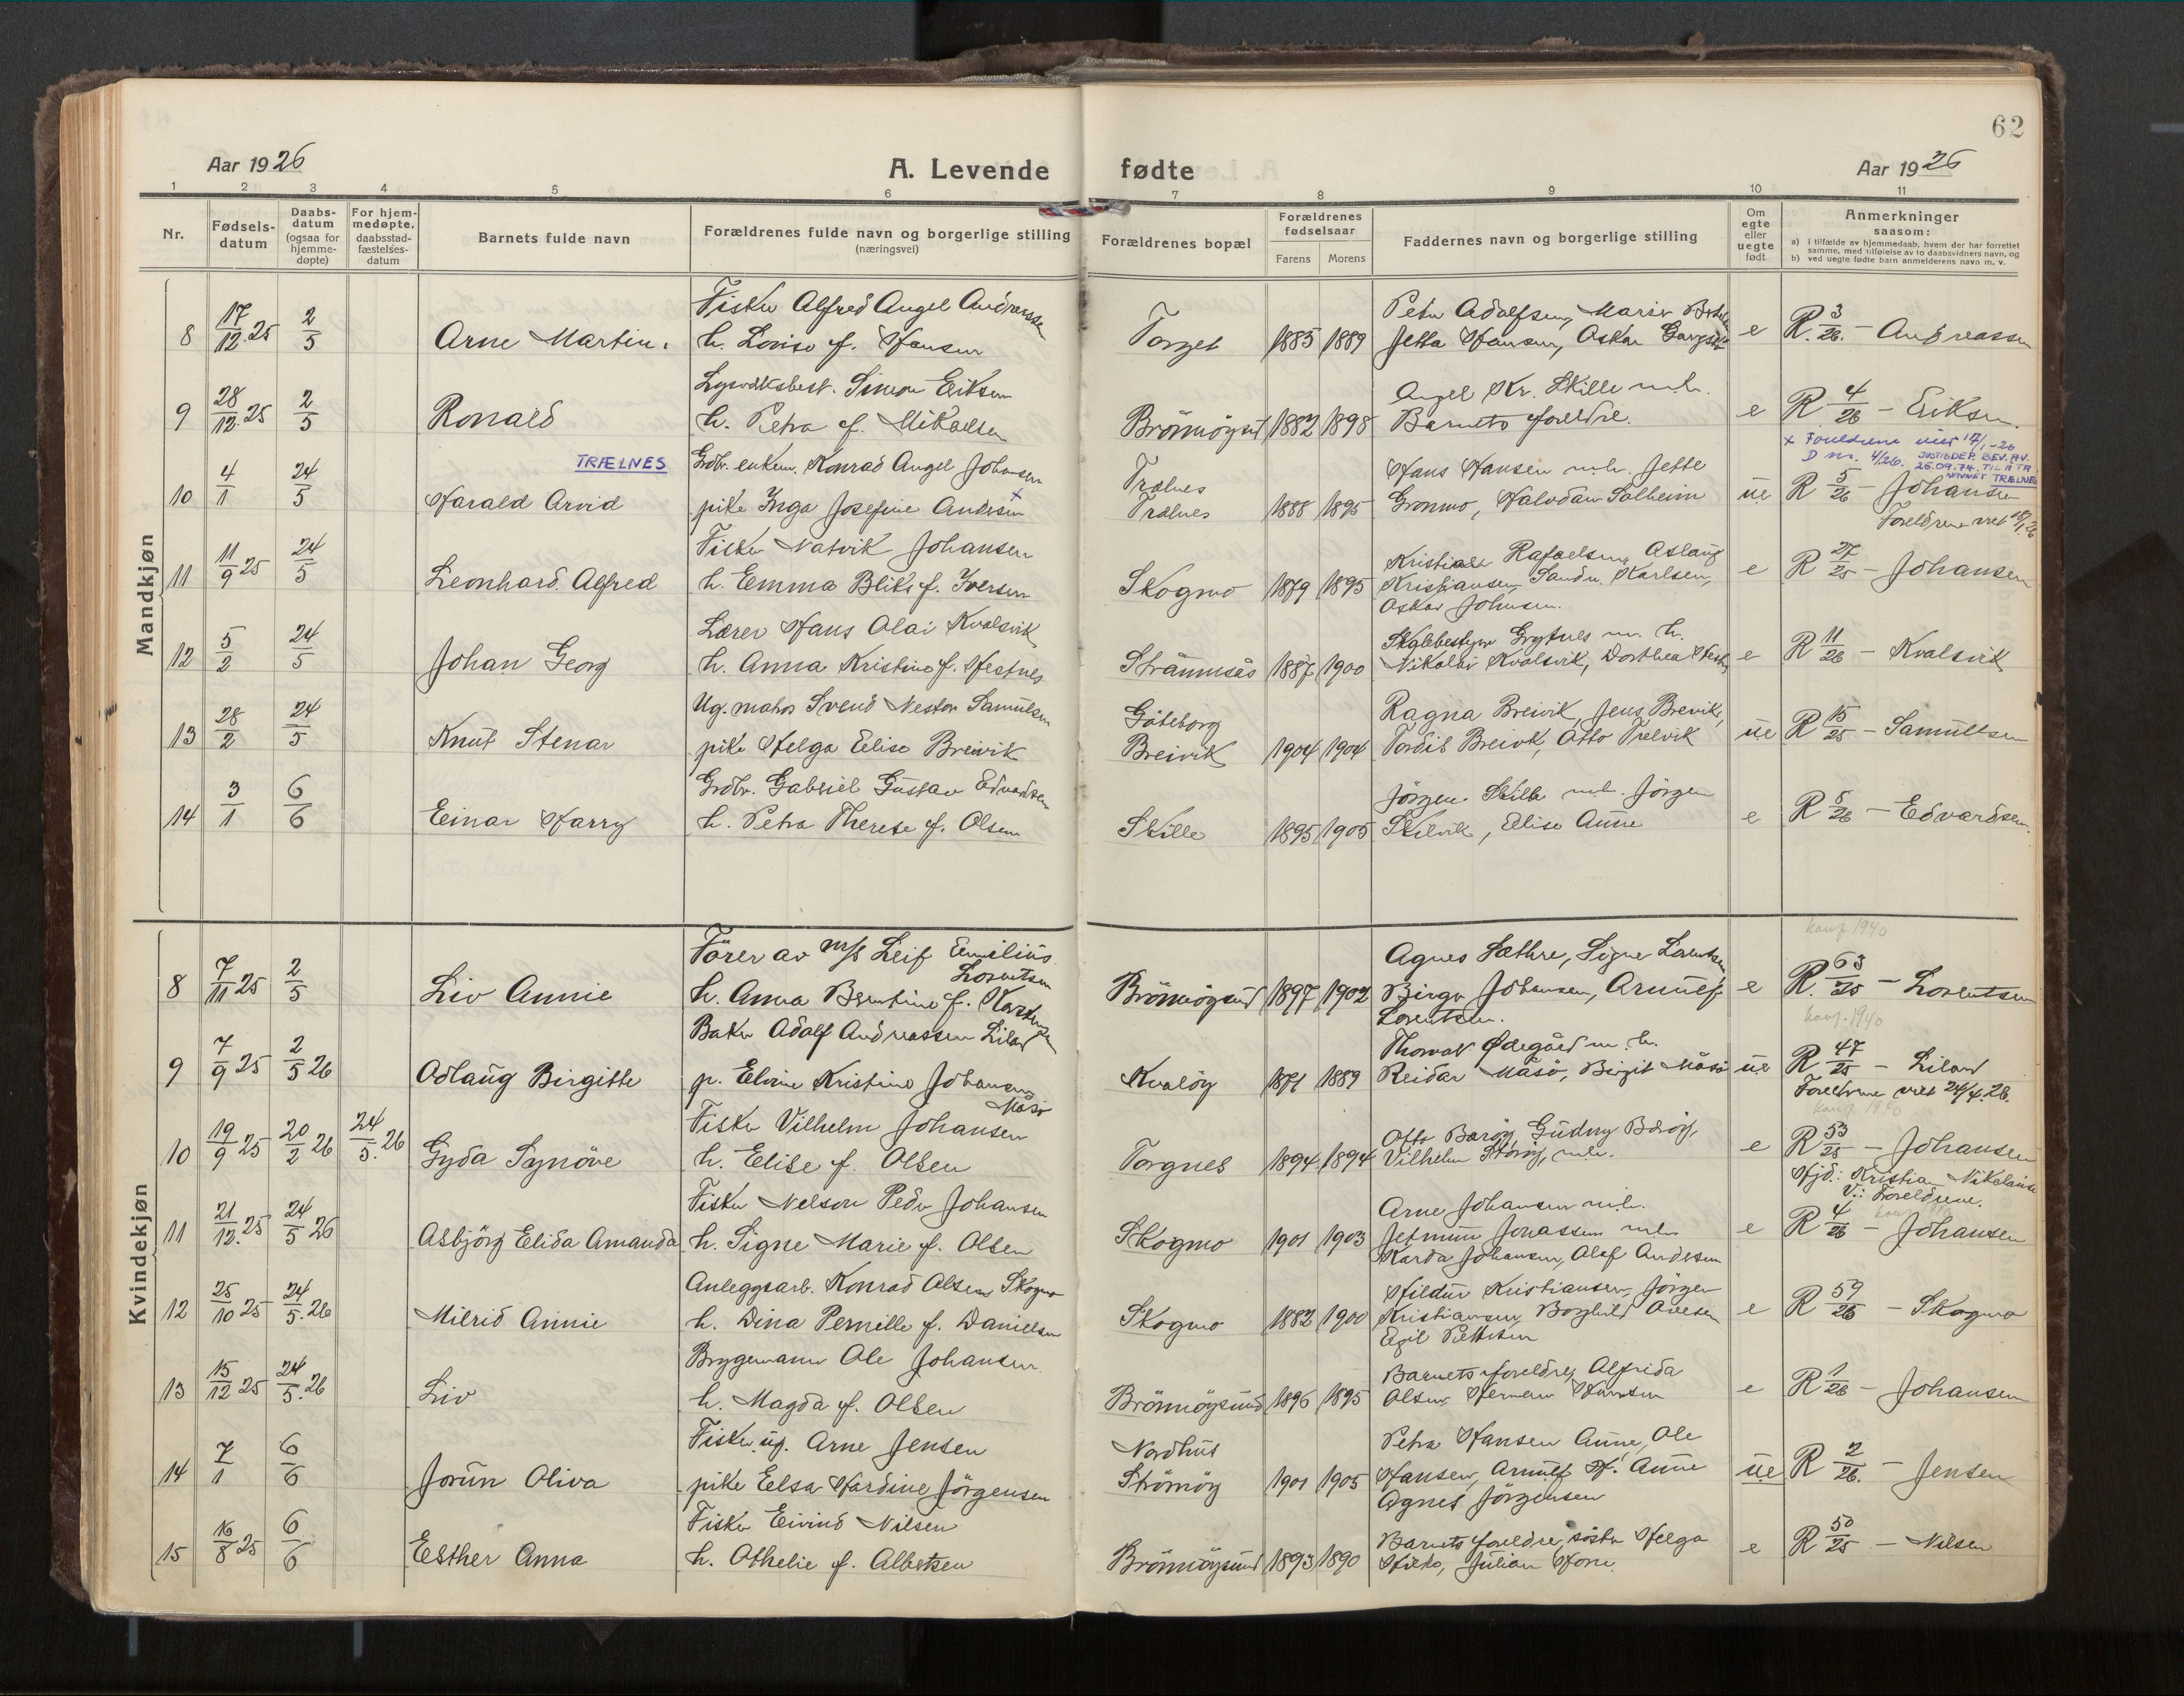 62
Aar 1926
A. Levende fødte
Aar 1926
1 2 3 4 5 6 7 8 9 10 11
Nr.
Fødsels-
datum
Daabs-
datum
(ogsaa for
hjemme-
døpte)
For hjem-
medøpte,
daabsstad-
fæstelses-
datum
Barnets fulde navn
Forældrenes fulde navn og borgerlige stilling
(næringsvei)
Forældrenes bopæl
Forældrenes
fødselsaar
Farens Morens
Faddernes navn og borgerlige stilling
Om
egte
eller
uegte
født
Anmerkninger
saasom:
a) i tilfælde av hjemmedaab, hvem der har forrettet
samme, med tilføielse av to daabsvidners navn, og
b) ved uegte fødte barn anmelderens navn m. v.
Mandkjøn
8 17/12 25 2/5 Arne Martin.
Fisker Alfred Angel Andreassen
h. Lovise f. Hansen
Torget 1885 1889
Petter Adolfsen, Marie
Jetta Hansen, Oskar
e R. 3/26. - Andreassen
9 28/12 25 2/5 Ronald
Simon Eriksen
h. Petra f. Mikaelsen
Brönnöysund 1882 1898
Angel Kr. Skille m.h.
Barnets foreldre.
e R 4/26 - Eriksen.
x Foreldrene viet 17/1-26
D nr. 4/26. JUSTISDEP. BEV. AV.
26.09.74. TIL Å TA
NAVNET TRÆLNES
10 4/1 24/5 TRÆLNES
Harald Arvid
Grdbr. enkem. Konrad Angel Johansen
pike Inga Josefine Andersen x
Trælnes
Trælnes 1888 1895
Hans Hansen m.h. Jette
Gronmo, Halvdan Solheim
ue R 5/26 - Johansen
Foreldrene viet
11 11/9 25 24/5 Leonhard Alfred
Fisker Natvik Johansen
h. Emma Blika f. Iversen
Skogmo 1879 1895
Kristian Rafaelsen, Aslaug
Kristiansen, Karlsen,
Oskar Johnsen.
e R 27/25 - Johansen
12 5/2 24/5 Johan Georg
Lærer Hans Olai Kvalsvik
h. Anna Kristine f. Hestnes
Strømmsås 1887 1900
Skolebestyrer Grytnes m. h.
Nikolai Kvalsvik, Dorthea
e R 11/26 - Kvalsvik
13 28/2 24/5 Knut Stenar
Ug. matros Svend Nestor Samuelsen
pike Helga Elise Breivik
Göteborg
Breivik 1904 1904
Ragna Breivik, Jens Breivik,
Tordis Breivik, Otto Trelvik
ue R 15/25 - Samuelsen
14 3/1 6/6 Einar Harry
Grdbr. Gabriel Gustav Edvardsen
h. Petra Therese f. Olsen
Skille 1895 1905
Jörgen Skille m.h. Jörgen
Skilvik, Elise Anne
e R 5/26 - Edvardsen.
Kvindekjøn
konf 1940
8 7/11 25 2/5 Liv Annie
Förer av m/s Leif Emilius
Lorentsen
h. Anna Berntine f. Karstensen
Brönnöysund 1897 1902
Agnes Sæthre, Signe Lorentsen
Birger Johansen, Arnulf
Lorentsen.
e R. 63/25 - Lorentsen
konf. 1940
9 7/9 25 2/5 26 Odlaug Birgitte
Baker Adolf Andreassen Liland
p. Elvine Kristine Johansen
Måsö
Kvalöy 1871 1889
Thorvald Ødegård m. h.
Reidar Måsö, Birgit Måsö
ue R 47/25 - Liland
Foreldrene viet 24/4.26.
konf 1940
10 19/9 25 20/2 26 24/5. 26 Gyda Synöve
Fisker Vilhelm Johansen
h. Elise f. Olsen
Torgnes 1894 1894
Otto Baröy, Gudny Baröy,
Vilhelm Storöy, m.h.
e R 53/25 - Johansen
Hjd.: Kristian Nikolaisen
V.: Foreldrene.
11 21/12. 25 24/5 26 Asbjörg Elida Amanda
Fisker Nelson Peder Johansen
h. Signe Marie f. Olsen
Skogmo 1901 1903
Arne Johansen m.h.
Jetmun Jonassen m.h.
Karda Johansen, Olaf Andersen
e R 4/26 - Johansen
12 25/10 25 24/5. 26 Milrid Annie
Anleggsarb. Konrad Olsen Skogmo
h. Dina Pernille f. Danielsen
Skogmo 1882 1900
Hildur Kristiansen, Jörgen
Kristiansen, Borghild Ovesen
Egil Pettersen
e R 59/26 - Skogmo
13 15/12 25 24/5. 26 Liv
Bryggemann Ole Johansen
h. Magda f. Olsen
Brönnöysund 1896 1895
Barnets foreldre, Alfrida
Olsen, Herman
e R 1/26 - Johansen
14 7/1 6/6 Jorun Oliva
Fisker. ug. Arne Jensen
pike Elsa Hardine Jörgensen
Nordhus
Strömöy 1901 1905
Petra Hansen Aune, Ole
Hansen, Arnulf H. Aune
Agnes Jörgensen
ue R 2/26. - Jensen
15 16/8 25 6/6 Esther Anna
Fisker Eivind Nilsen
h. Othelie f. Albertsen
Brönnöysund 1893 1890
Barnets foreldre, söster Helga
Julian
e R 50/25 - Nilsen